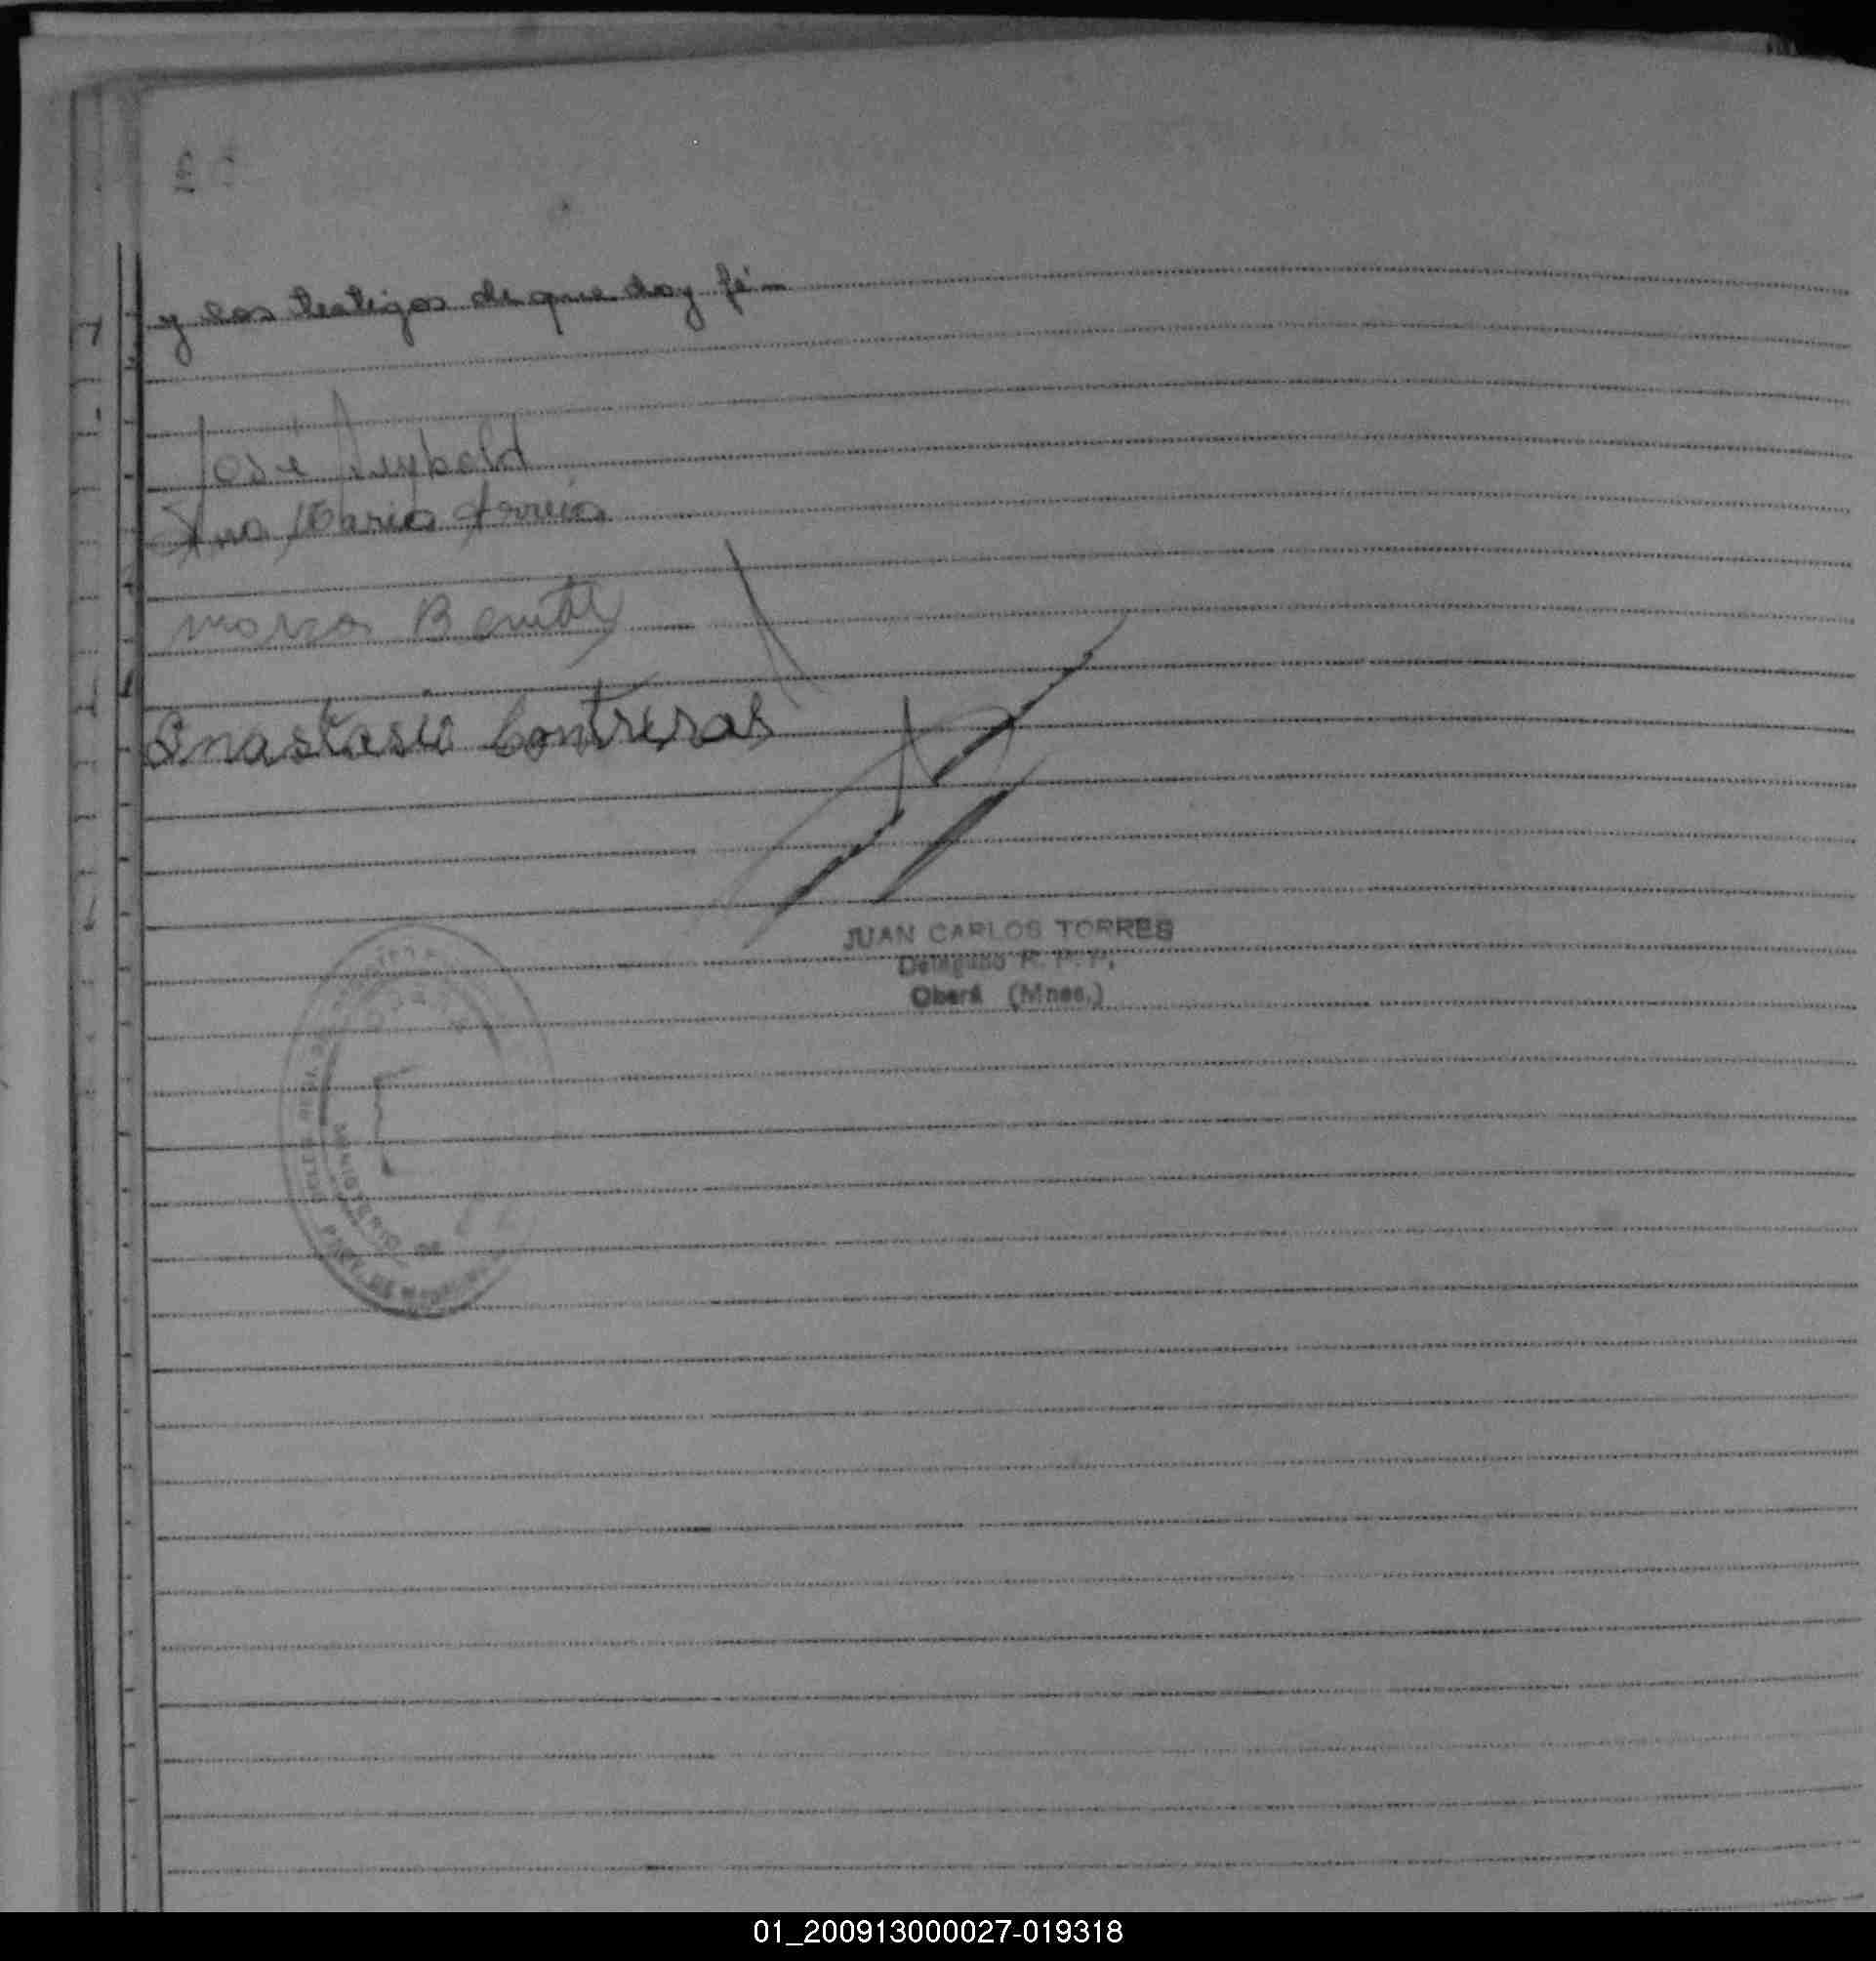 y los testigos de que doy fé
José
Ana María
María Benitez
Anastasio Contreras
JUAN CARLOS TORRES
Delegado R. P. P.
Oberá (Mnes.)
MINISTERIO DE
PROV. DE MISIONES
01_200913000027-019318